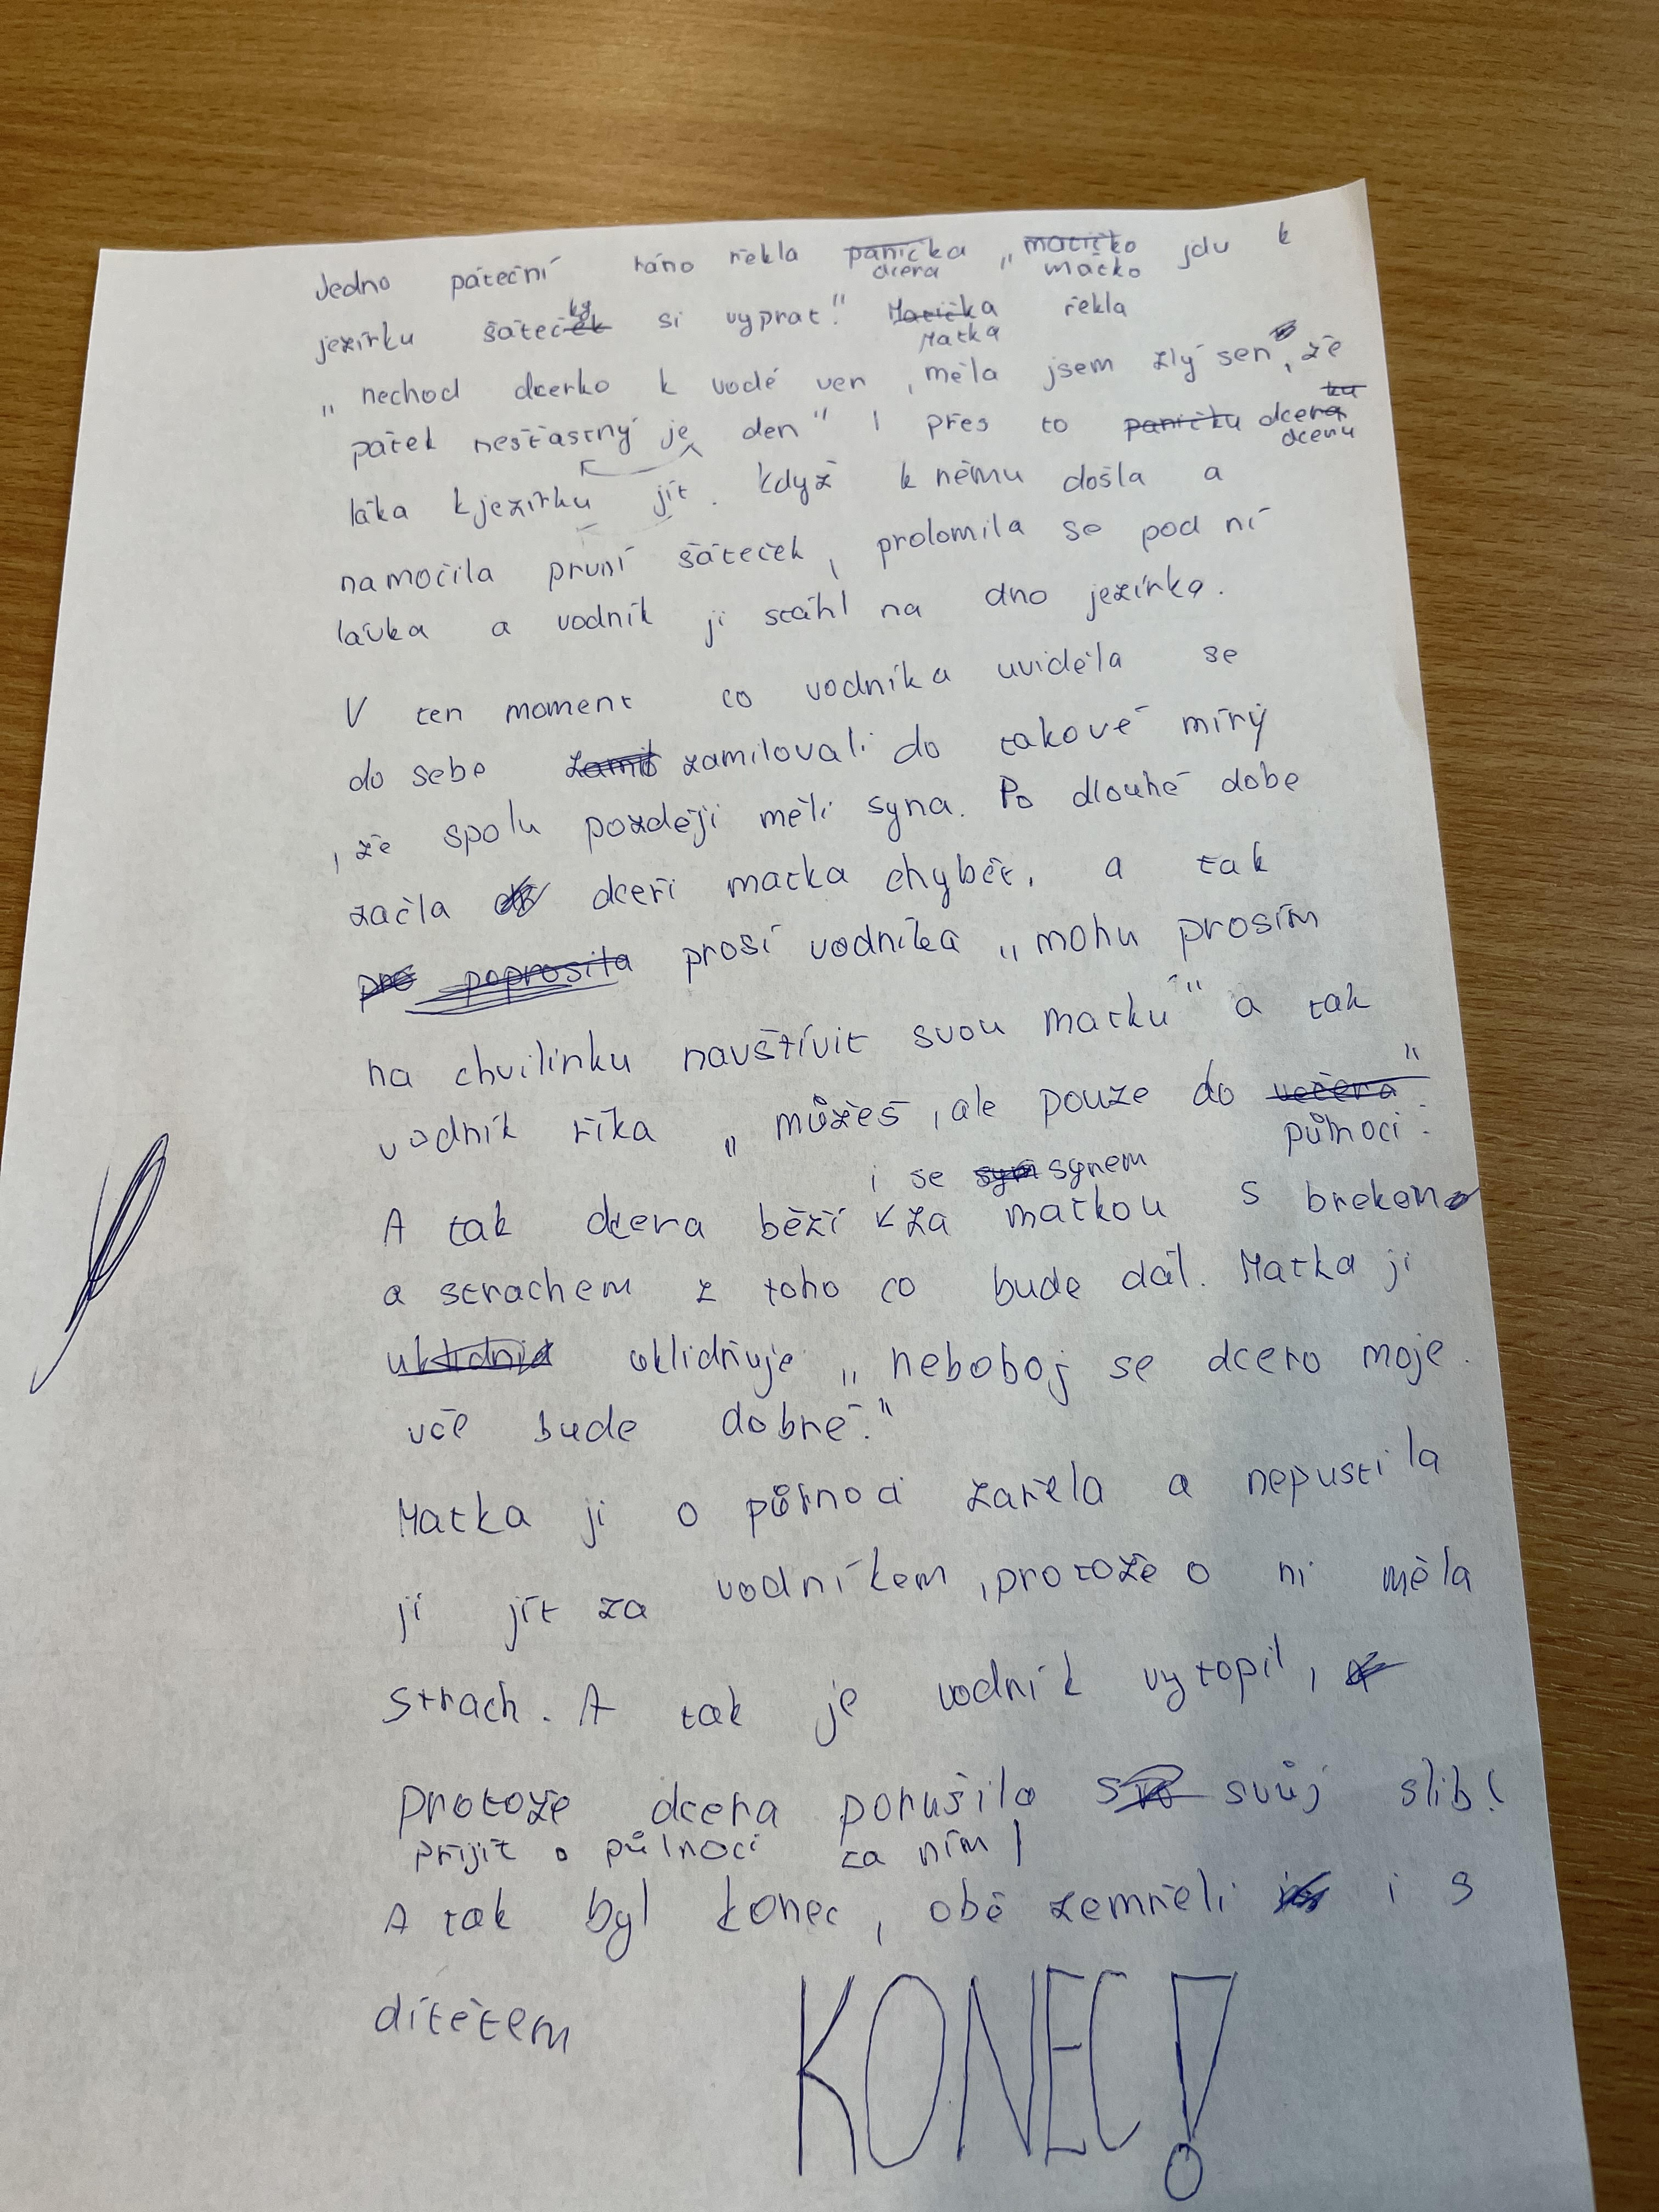 Jedno páteční ráno řekla panička „matičko jdu k
dcera matko
jezírku šátečky si vyprat." Matička řekla
Matka
„nechod dcerko k vodě ven, měla jsem zlý sen, že
pátek nešťastný je den" I přes to paničku dceru
dceru
láka k jezírku jít. Když k němu došla a
namočila první šáteček, prolomila se pod ní
lávka a vodník ji stáhl na dno jezírka.
V ten moment co vodníka uviděla se
do sebe zamilovali do takové míry
, že spolu později měli syna. Po dlouhé době
začla dceři matka chybět, a tak
pro poprosila prosí vodníka „mohu prosím
na chvilinku navštívit svou matku" a tak
vodník říká „můžeš, ale pouze do večera"
půlnoci.
i se synem
A tak dcera běží za matkou s brekem
a strachem z toho co bude dál. Matka ji
uklidnia uklidňuje „neboboj se dcero moje
vče bude dobré."
Matka ji o půlnoci zařela a nepustila
ji jít za vodníkem, protože o ni měla
strach. A tak je vodník vytopil,
protože dcera porušila svůj slib!
přijít o půlnoci za ním!
A tak byl konec, obě zemřeli i s
dítětem
KONEC!